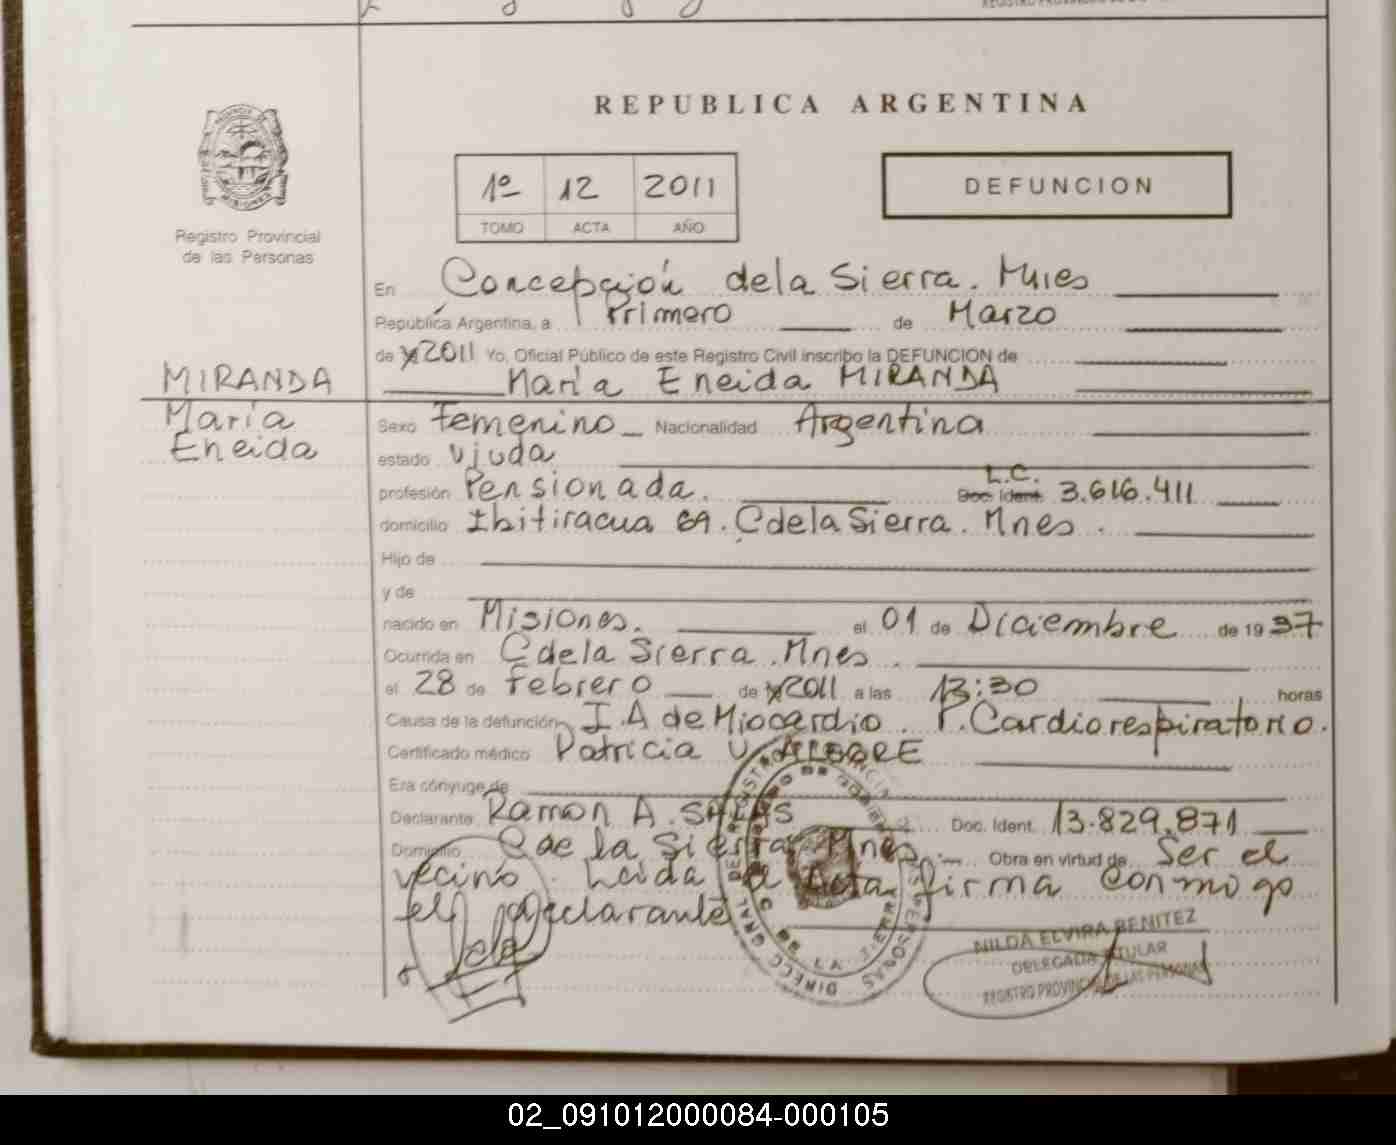 REPUBLICA ARGENTINA
1º 12 2011
TOMO ACTA AÑO
DEFUNCION
Registro Provincial
de las Personas
En Concepción de la Sierra. Mnes
República Argentina, a Primero de Marzo
de 2011 Yo, Oficial Público de este Registro Civil inscribo la DEFUNCION de
MIRANDA María Eneida MIRANDA
María
Eneida
Sexo Femenino Nacionalidad Argentina
estado viuda
profesión Pensionada. L.C. Doc. Ident. 3.616.411
domicilio Ibitiracua C de la Sierra. Mnes.
Hijo de
y de
nacido en Misiones. el 01 de Diciembre de 1937
Ocurrida en C de la Sierra. Mnes.
el 28 de Febrero de 2011 a las 13:30 horas
Causa de la defunción I.A de Miocardio. P. Cardiorespiratorio.
Certificado médico Patricia V. ALEGRE
Era cónyuge de
Declarante Ramon A. SALAS Doc. Ident. 13.829.871
Domicilio C de la Sierra Mnes. Obra en virtud de Ser el
vecino. Leida el Acta firma conmigo
el declarante
NILDA ELVIRA BENITEZ
DELEGADA TITULAR
REGISTRO PROVINCIAL DE LAS PERSONAS
02_091012000084-000105